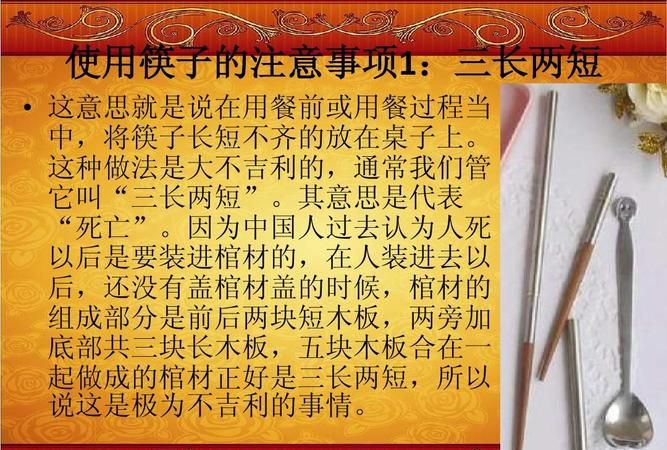 使用筷子的注意事项1：三长两短
• 这意思就是说在用餐前或用餐过程当
中，将筷子长短不齐的放在桌子上。
这种做法是大不吉利的，通常我们管
它叫“三长两短”。其意思是代表
“死亡”。因为中国人过去认为人死
以后是要装进棺材的，在人装进去以
后，还没有盖棺材盖的时候，棺材的
组成部分是前后两块短木板，两旁加
底部共三块长木板，五块木板合在一
起做成的棺材正好是三长两短，所以
说这是极为不吉利的事情。